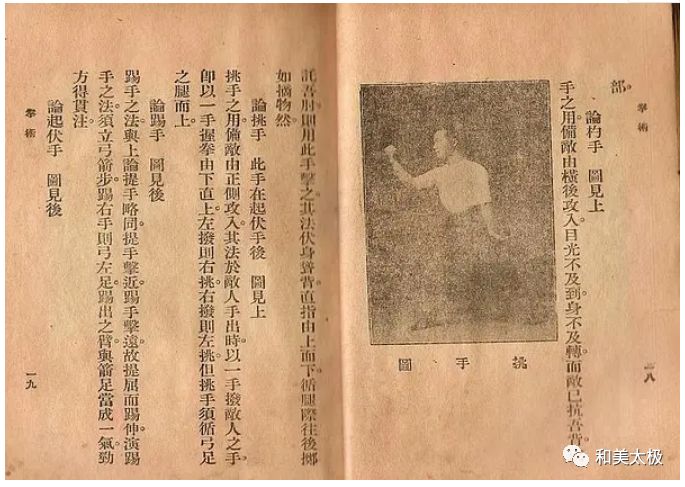 拳術
部。
論杓手　圖見上
手之用備敵由橫後攻入。目光不及到。身不及轉。而敵已抗吾背。
挑手圖
一八
託吾肘。則用此手擊之。其法伏身聳背。直指由上而下。循腿際往後擲。
如摘物然。
論挑手　此手在起伏手後　圖見上
挑手之用備敵由正側攻入。其法於敵人手出時。以一手撥敵人之手。
卽以一手握拳由下直上。左撥則右挑。右撥則左挑。但挑手須循弓足
之腿而上。
論踢手　圖見後
踢手之法。與上論提手略同。提手擊近。踢手擊遠。故提屈而踢伸。演踢
手之法。須立弓箭步。踢右手則弓左足。踢出之臂。與箭足當成一氣。勁
方得貫注。
論起伏手　圖見後
拳術
一九
和美太极